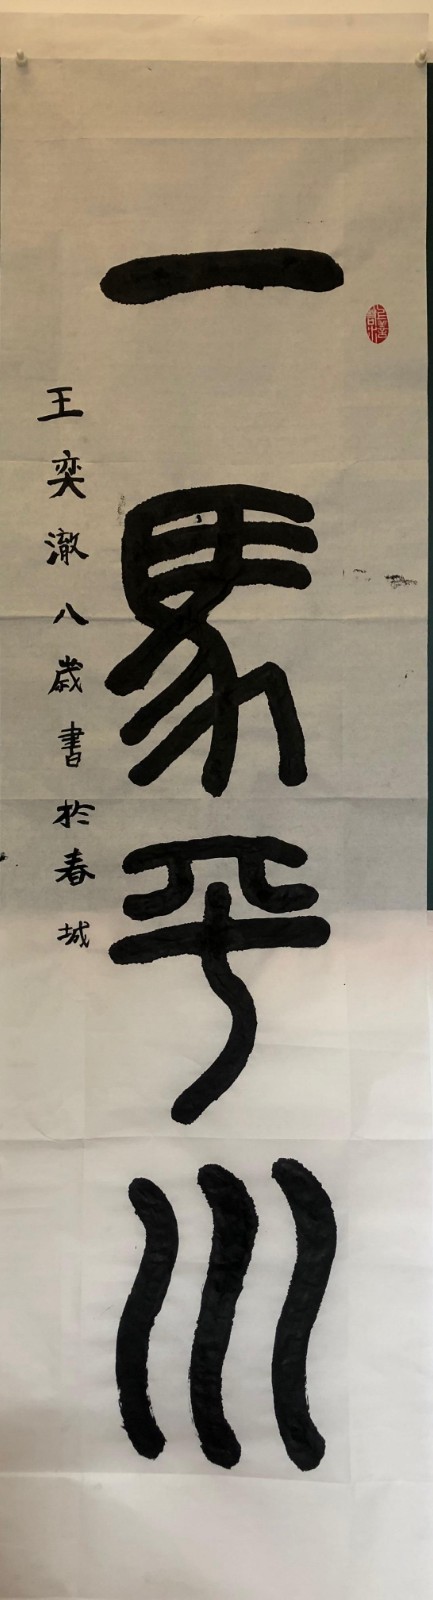 一馬平川
王奕澈八歲書於春城